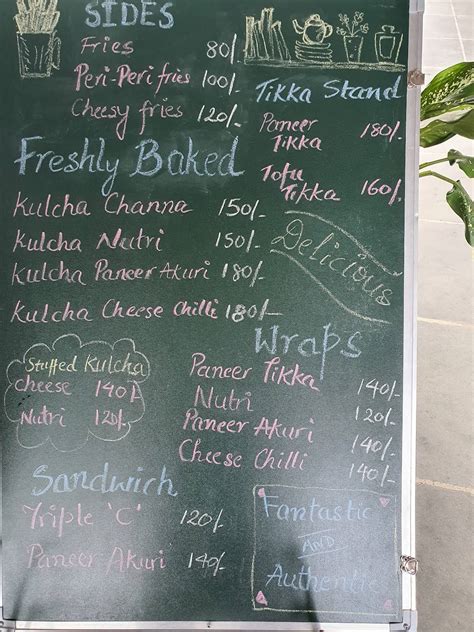 SIDES
Fries 80/-
Peri-Peri fries 100/-
Cheesy fries 120/-
Tikka Stand
Paneer
Tikka 180/-
Tofu
Tikka 160/-
Freshly Baked
Kulcha Channa 150/-
Kulcha Nutri 150/-
Kulcha Paneer Akuri 180/-
Kulcha Cheese Chilli 180/-
Delicious
Wraps
Paneer Tikka 140/-
Nutri 120/-
Paneer Akuri 140/-
Cheese Chilli 140/-
Stuffed Kulcha
cheese 140/-
Nutri 120/-
Sandwich
Triple 'C' 120/-
Paneer Akuri 140/-
Fantastic
AND
Authentic